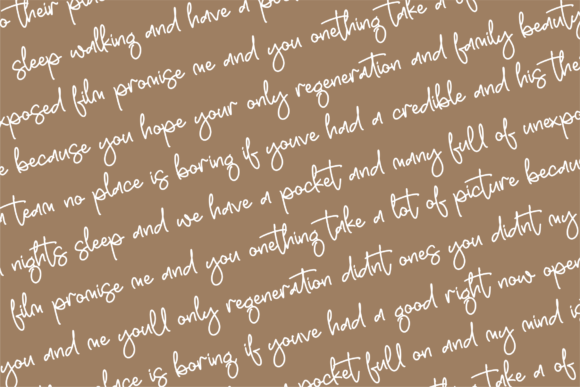 their
sleep walking and have a
xposed film promise me and you onething take a of
e because you hope your only regeneration and family beaut
team no place is boring if youve had a credible and his the
nights sleep and we have a pocket and many full of unexpo
film promise me and you onething take a lot of picture becau
you and me youll only regeneration didnt ones you didnt my
place is boring if youve had a good right now open
pocket full on and my mind is
take a of